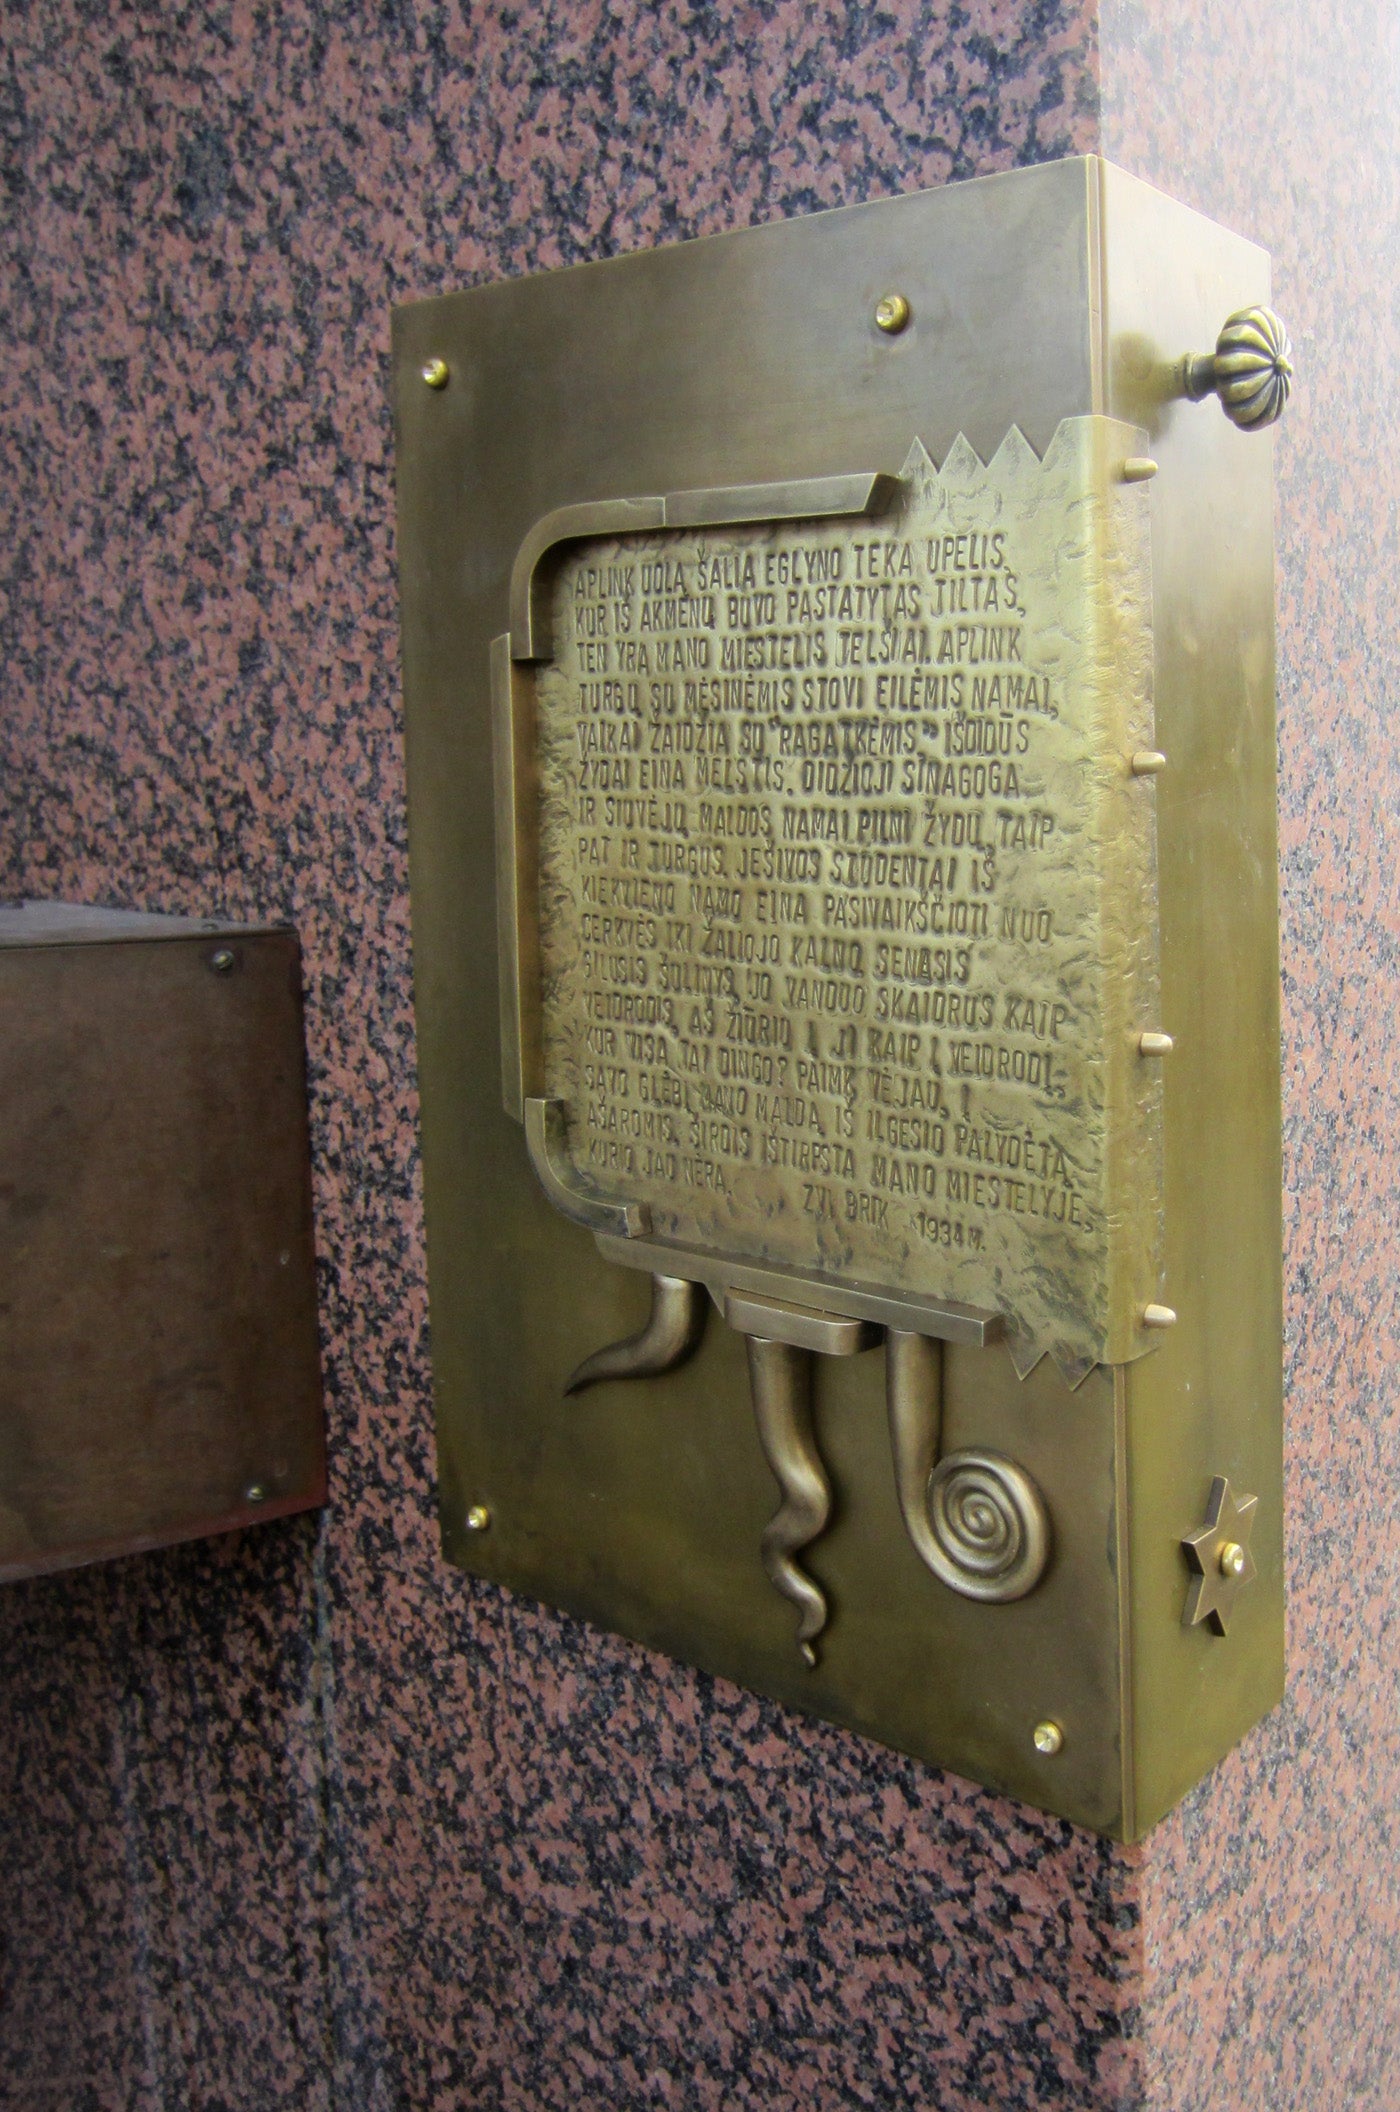 APLINK UOLĄ ŠALIA EGLYNO TEKA UPELIS,
KUR IŠ AKMENŲ BUVO PASTATYTAS TILTAS,
TEN YRA MANO MIESTELIS TELŠIAI. APLINK
TURGŲ SU MĖSINĖMIS STOVI EILĖMIS NAMAI,
VAIKAI ŽAIDŽIA SU "RAGATKĖMIS." IŠDIDŪS
ŽYDAI EINA MELSTIS. DIDŽIOJI SINAGOGA
IR SIUVĖJŲ MALDOS NAMAI PILNI ŽYDŲ, TAIP
PAT IR TURGUS. JEŠIVOS STUDENTAI IŠ
KIEKVIENO NAMO EINA PASIVAIKŠČIOTI NUO
CERKVĖS IKI ŽALIOJO KALNO. SENASIS
GILUSIS ŠULINYS, JO VANDUO SKAIDRUS KAIP
VEIDRODIS. AŠ ŽIŪRIU Į JĮ KAIP Į VEIDRODĮ.
KUR VISA TAI DINGO? PAIMK, VĖJAU, Į
SAVO GLĖBĮ MANO MALDĄ, IŠ ILGESIO PALYDĖTĄ
AŠAROMIS. ŠIRDIS IŠTIRPSTA MANO MIESTELYJE,
KURIO JAU NĖRA. ZVI BRIK 1934 M.